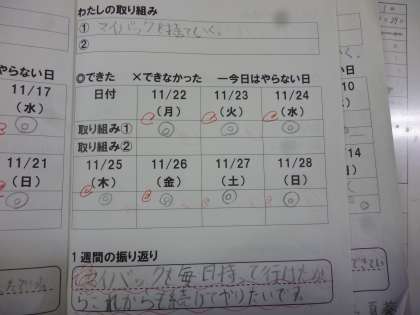 わたしの取り組み
① マイバックを持っていく。
②
やらない日
◎できた ×できなかった －今日はやらない日
11/17
(水)
日付
11/22
(月)
11/23
(火)
11/24
(水)
10
(水)
取り組み① ◎ ◎ ◎
取り組み②
11/21
(日)
11/25
(木)
11/26
(金)
11/27
(土)
11/28
(日)
14
(日)
◎ ◎ ◎ ◎
1週間の振り返り
マイバックを毎日持って行けたか
らこれからも続けてやりたいです